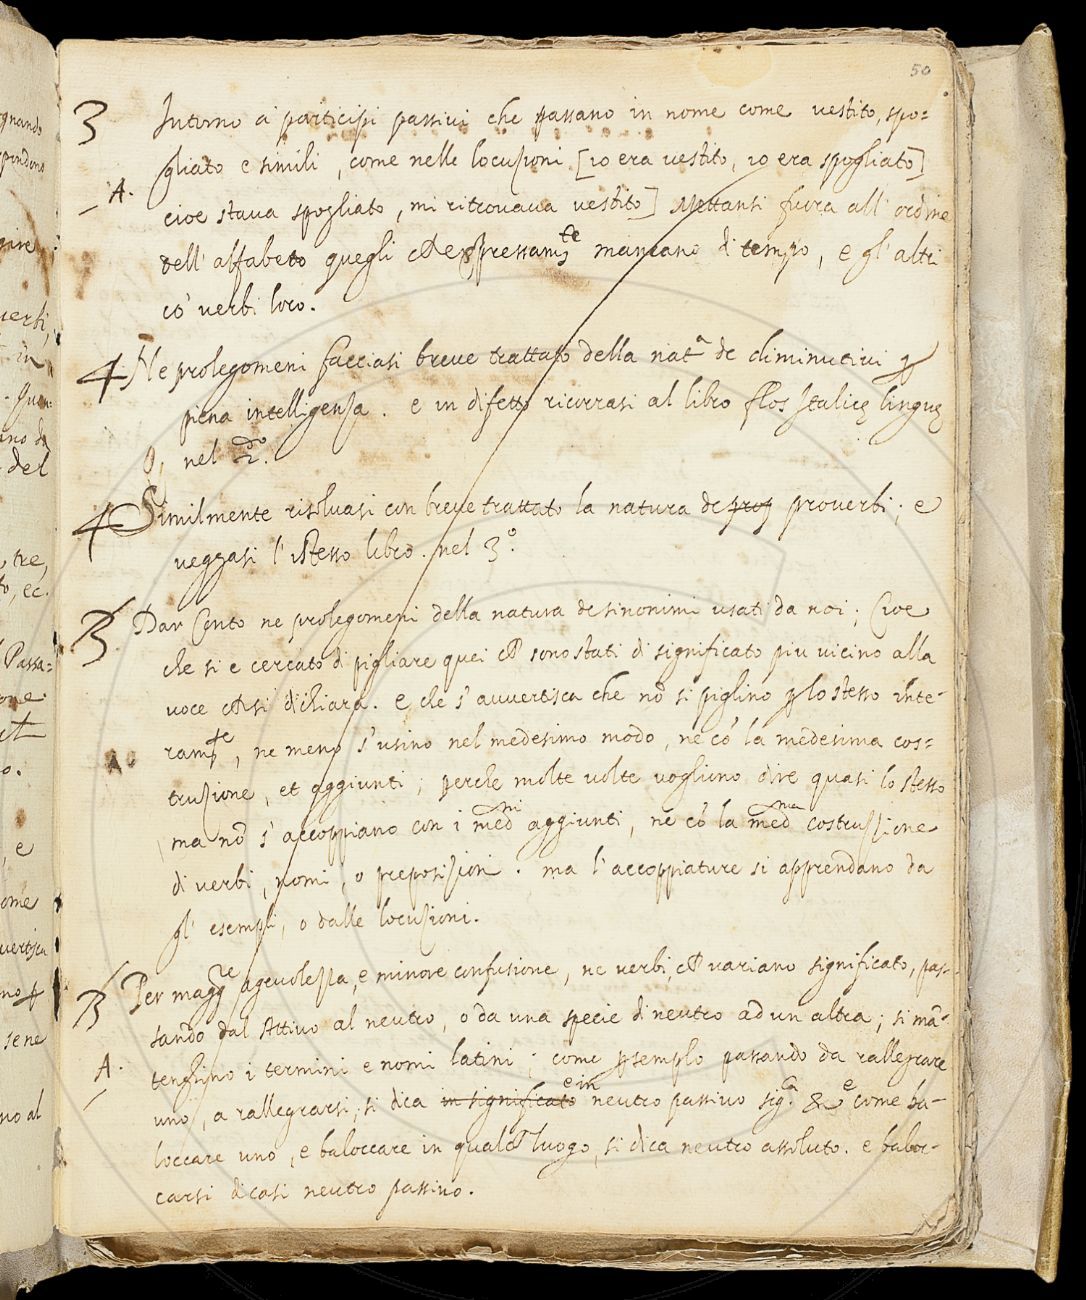 50
3 Intorno ai participi passivi che passano in nome come vestito, spo=
gliato e simili, come nelle locuzioni [io era vestito, io era spogliato]
A. cioè stava spogliato, mi ritrovava vestito] mettansi fuora all' ordine
dell' alfabeto quegli che espressamte mancano di tempo, e gl' altri
cō verbi loro.
4 Ne prolegomeni facciasi breve trattato della nata de diminutivi ꝑ
piena intelligenza. e in difetto ricorrasi al libro flos Italicę linguę
nel 2do.
4 Similmente risolvasi con breve trattato la natura de prof proverbi; e
veggasi l' istesso libro. nel 3o.
B Dar Conto ne prolegomeni della natura de sinonimi usati da noi; Cioe
che si e cercato di pigliare quei ch sono stati di significato piu vicino alla
voce ch si dichiara. e che s' avvertisca che nō si piglino ꝑ lo stesso inte-
ramte, ne meno s' usino nel medesimo modo, ne cō la medesima cos=
truzione, et aggiunti; perche molte volte vogliono dire quasi lo stesso
ma nō s' accoppiano con i medmi aggiunti, ne cō la medma costruzzione
di verbi, nomi, o preposizioni. ma l' accoppiature si apprendano da
gl' esempi, o dalle locuzioni.
B Per maggre agevolezza, e minore confusione, ne verbi, ch variano significato, pas-
sando dal Attivo al neutro, o da una specie di neutro ad un altra; si mā-
A. tenghino i termini e nomi latini; come ꝑ esemplo passando da rallegrare
uno, a rallegrarsi, si dica in significato e in neutro passivo siga. & e come ba-
loccare uno, e baloccare in qualch luogo, si dica neutro assoluto. e baloc-
carsi dicasi neutro passivo.